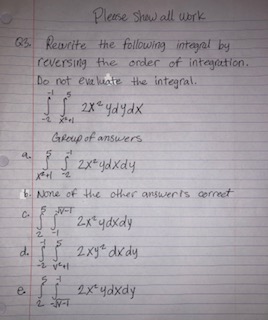 Please Show all work
Q3. Rewrite the following integral by
reversing the order of integration.
Do not evaluate the integral.
∫_{-2}^{-1} ∫_{x²+1}^{5} 2x²y dy dx
Group of answers
a. ∫_{x²+1}^{5} ∫_{-2}^{-1} 2x²y dx dy
b. None of the other answers is correct
c. ∫_{2}^{5} ∫_{-1}^{√y-1} 2x²y dx dy
d. ∫_{-2}^{-1} ∫_{y²+1}^{5} 2xy² dx dy
e. ∫_{2}^{5} ∫_{-√y-1}^{-1} 2x²y dx dy